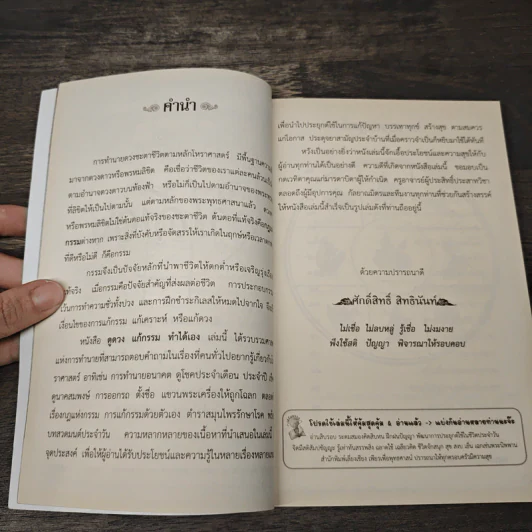 คำนำ
การทำนายดวงชะตาชีวิตตามหลักโหราศาสตร์ มีพื้นฐานความ
มาจากดวงดาวหรือพรหมลิขิต คือเชื่อว่าชีวิตของเราแต่ละคนล้วน
ตามอำนาจดวงดาวบนท้องฟ้า หรือไม่ก็เป็นไปตามอำนาจของพระพรหม
ที่ลิขิตให้เป็นไปตามนั้น แต่ตามหลักของพระพุทธศาสนาแล้ว ดวง
หรือพรหมลิขิตไม่ใช่ต้นตอแท้จริงของชะตาชีวิต ต้นตอที่แท้จริงคือ
กรรมต่างหาก เพราะสิ่งที่บังคับหรือจัดสรรให้เราเกิดในฤกษ์หรือเวลา
ที่ดีหรือไม่ดี ก็คือกรรม
กรรมจึงเป็นปัจจัยหลักที่นำพาชีวิตให้ตกต่ำหรือเจริญรุ่งเรือง
แท้จริง เมื่อกรรมคือปัจจัยสำคัญที่ส่งผลต่อชีวิต การประกอบกรรม
เว้นการทำความชั่วทั้งปวง และการฝึกชำระกิเลสให้หมดไปจากใจ จึง
เงื่อนไขของการแก้กรรม แก้เคราะห์ หรือแก้ดวง
หนังสือ ดูดวง แก้กรรม ทำได้เอง เล่มนี้ ได้รวบรวม
แห่งการทำนายที่สามารถตอบคำถามในเรื่องที่คนทั่วไปอยากรู้เกี่ยวกับ
ราศาสตร์ อาทิเช่น การทำนายอนาคต ดูโชคประจำเดือน ประจำปี
ดูนาคสมพงษ์ การออกรถ ตั้งชื่อ แขวนพระเครื่องให้ถูกโฉลก ตลอด
เรื่องกฎแห่งกรรม การแก้กรรมด้วยตัวเอง ตำราสมุนไพรรักษาโรค
บทสวดมนต์ประจำวัน ความหลากหลายของเนื้อหาที่นำเสนอในเล่มนี้
จุดประสงค์ เพื่อให้ผู้อ่านได้รับประโยชน์และความรู้ในหลายเรื่องหลาย
เพื่อนำไปประยุกต์ใช้ในการแก้ปัญหา บรรเทาทุกข์ สร้างสุข ตามสมควร
แก่โอกาส ประดุจยาสามัญประจำบ้านที่เมื่อคราวจำเป็นก็หยิบมาใช้ได้ทันที
หวังเป็นอย่างยิ่งว่าหนังสือเล่มนี้จักเอื้อประโยชน์และความสุขให้กับ
ผู้อ่านทุกท่านได้เป็นอย่างดี ความดีที่เกิดจากหนังสือเล่มนี้ ขอมอบเป็น
กตเวทิตาคุณแก่มารดาบิดาผู้ให้กำเนิด ครูอาจารย์ผู้ประสิทธิ์ประสาทวิชา
ตลอดถึงผู้มีอุปการคุณ กัลยาณมิตรและทีมงานทุกท่านที่ช่วยกันสร้างสรรค์
ให้หนังสือเล่มนี้สำเร็จเป็นรูปเล่มดังที่ท่านถืออยู่นี้
ด้วยความปรารถนาดี
ศักดิ์สิทธิ์ สิทธินันท์
ไม่เชื่อ ไม่ลบหลู่ รู้เชื่อ ไม่งมงาย
พึงใช้สติ ปัญญา พิจารณาให้รอบคอบ
โปรดใช้เล่มนี้ให้คุ้มสุดคุ้ม & อ่านแล้ว -> แบ่งกันอ่านหลายท่านนะจ๊ะ